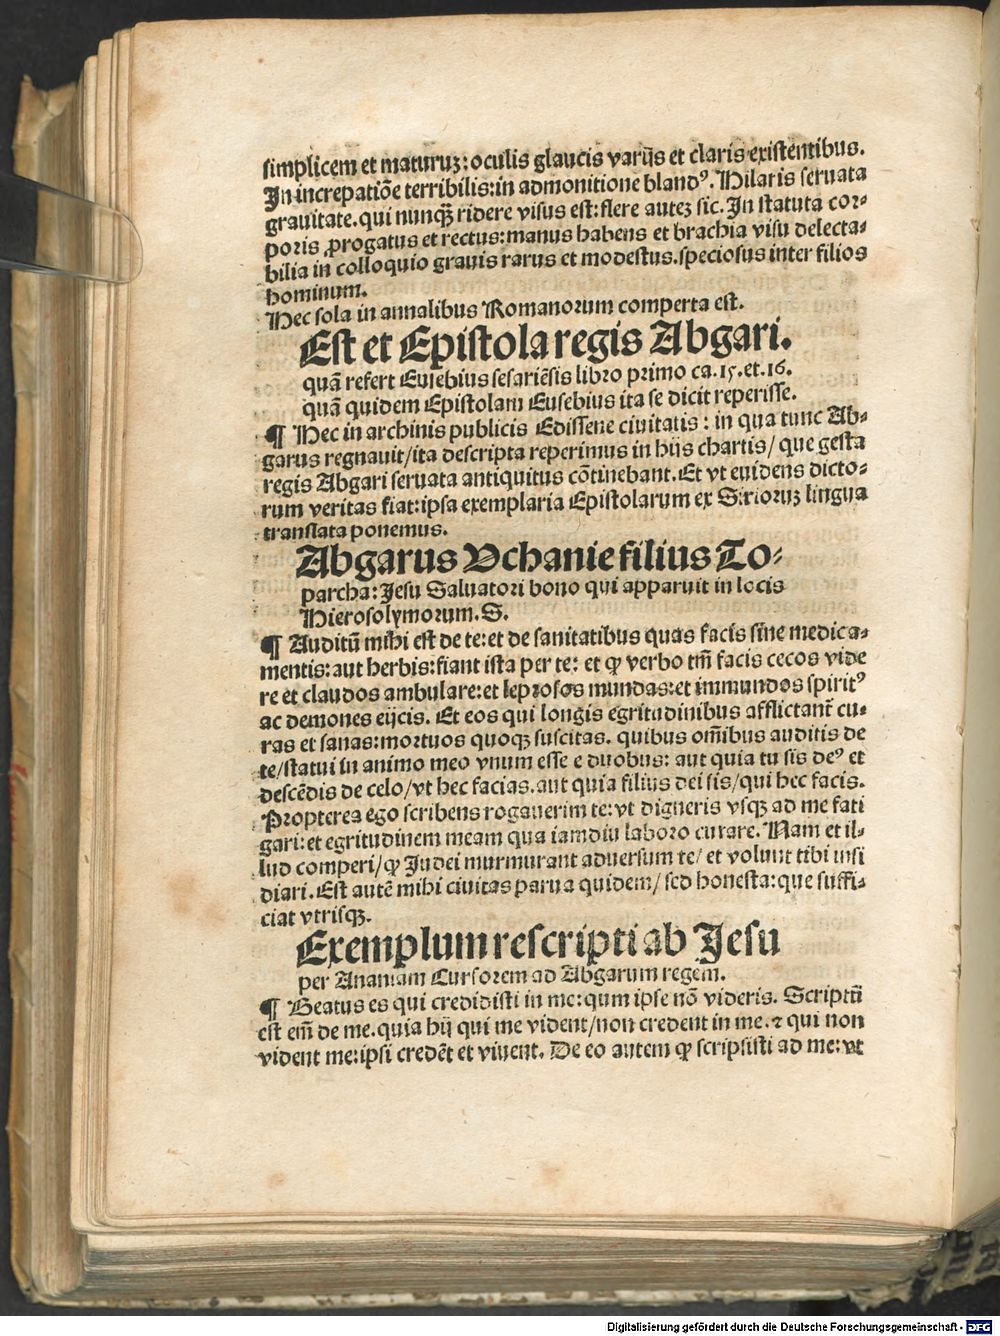 simplicem et maturuꝫ: oculis glaucis varijs et claris existentibus.
In increpatiōe terribilis: in admonitione blandꝰ. Hilaris seruata
grauitate. qui nunqꝫ ridere visus est: flere auteꝫ sic. In statuta cor⸗
poris ꝓrogatus et rectus: manus habens et brachia visu delecta⸗
bilia in colloquio grauis rarus et modestus. speciosus inter filios
hominum.
Hec sola in annalibus Romanorum comperta est.
Est et Epistola regis Abgari.
quā refert Eusebius sesariēsis libro primo ca. 15. et. 16.
quā quidem Epistolam Eusebius ita se dicit reperisse.
¶ Hec in archinis publicis Edissene ciuitatis: in qua tunc Ab⸗
garus regnauit/ ita descripta reperimus in hijs chartis/ que gesta
regis Abgari seruata antiquitus cōtinebant. Et vt euidens dicto⸗
rum veritas fiat: ipsa exemplaria Epistolarum ex Siroruꝫ lingua
translata ponemus.
Abgarus Vchanie filius To⸗
parcha: Jesu Saluatori bono qui apparuit in locis
Hierosolymorum. S.
¶ Auditū mihi est de te: et de sanitatibus quas facis sine medica⸗
mentis: aut herbis: fiant ista per te: et ꝙ verbo tm̄ facis cecos vide
re et claudos ambulare: et leprosos mundas: et immundos spiritꝰ
ac demones eijcis. Et eos qui longis egritudinibus afflictant̄ cu⸗
ras et sanas: mortuos quoqꝫ suscitas. quibus om̄ibus auditis de
te/ statui in animo meo vnum esse e duobus: aut quia tu sis deꝰ et
descēdis de celo/ vt hec facias. aut quia filius dei sis/ qui hec facis.
Propterea ego scribens rogauerim te: vt digneris vsqꝫ ad me fati
gari: et egritudinem meam qua iamdiu laboro curare. Nam et il⸗
lud comperi/ ꝙ Judei murmurant aduersum te/ et volunt tibi insi
diari. Est autē mihi ciuitas parua quidem/ sed honesta: que suffi⸗
ciat vtrisqꝫ.
Exemplum rescripti ab Jesu
per Ananiam Cursorem ad Abgarum regem.
¶ Beatus es qui credidisti in me: qum ipse nō videris. Scriptū
est em̄ de me. quia hij qui me vident/ non credent in me. ⁊ qui non
vident me: ipsi credēt et viuent. De eo autem ꝙ scripsisti ad me: vt
Digitalisierung gefördert durch die Deutsche Forschungsgemeinschaft - DFG